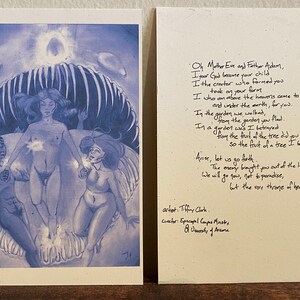 Oh, Mother Eve and Father Adam,
I your God became your child
I the creator who formed you
took on your form
I who am above the heavens come to
and under the earth, for you.
In the garden we walked,
from the garden you fled.
In a garden was I betrayed
from the fruit of the tree did you
so the fruit of a tree I b
Arise, let us go forth.
The enemy brought you out of the
We will go now, not to paradise,
but the very throne of heav
artist: Tiffany Clark
curator: Episcopal Campus Ministry
@ University of Arizona